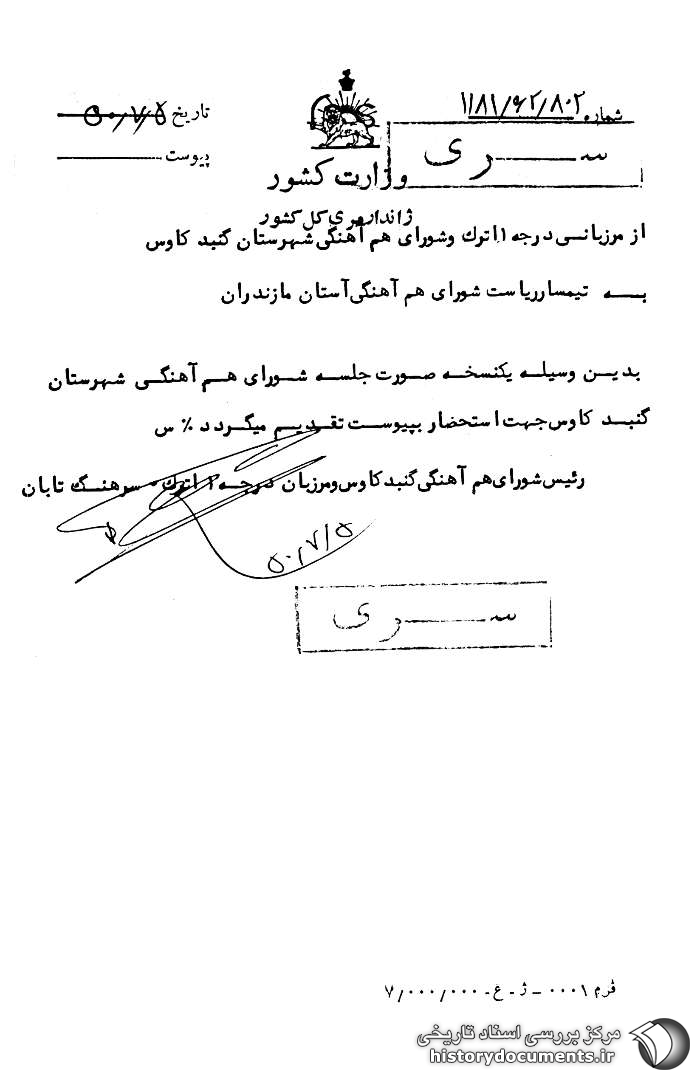 شماره ۱۱۸۱/۶۲/۸۰۲
تاریخ ۵۰/۷/۵
پیوست
ســـری
وزارت کشور
ژاندارمری کل کشور
از مرزبانی درجه ۱ اترك وشورای هم آهنگی شهرستان گنبد کاوس
بـه تیمسارریاست شورای هم آهنگی آستان مازندران
بدین وسیله یکنسخه صورت جلسه شورای هم آهنگی شهرستان
گنبد کاوس جهت استحضار بپیوست تقدیم میگردد ٪ س
رئیس شورای هم آهنگی گنبد کاوس ومرزبان درجه ۱ اترك - سرهنگ تابان
۵۰/۷/۵
ســـری
فرم ۰۰۰۱ - ژ - ع - ۷/۰۰۰/۰۰۰
مرکز بررسی اسناد تاریخی
historydocuments.ir